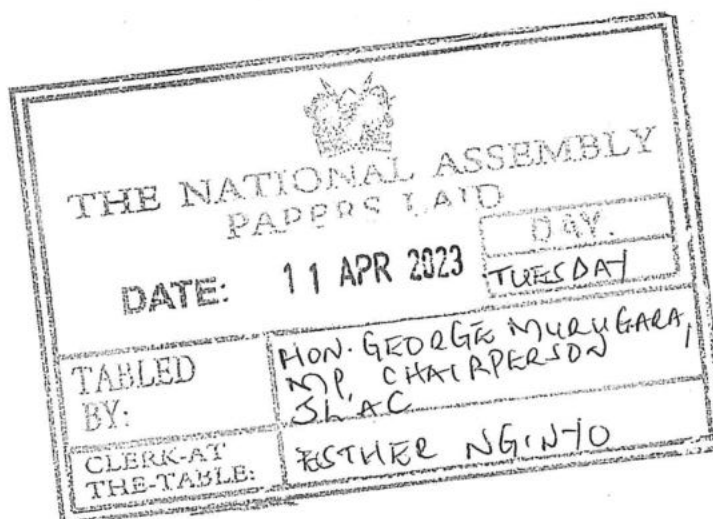 THE NATIONAL ASSEMBLY
PAPERS LAID
DAY.
DATE: 11 APR 2023 TUESDAY
TABLED BY:
HON. GEORGE MURUGARA,
MP, CHAIRPERSON
JLAC
CLERK-AT THE-TABLE:
ESTHER NGINYO